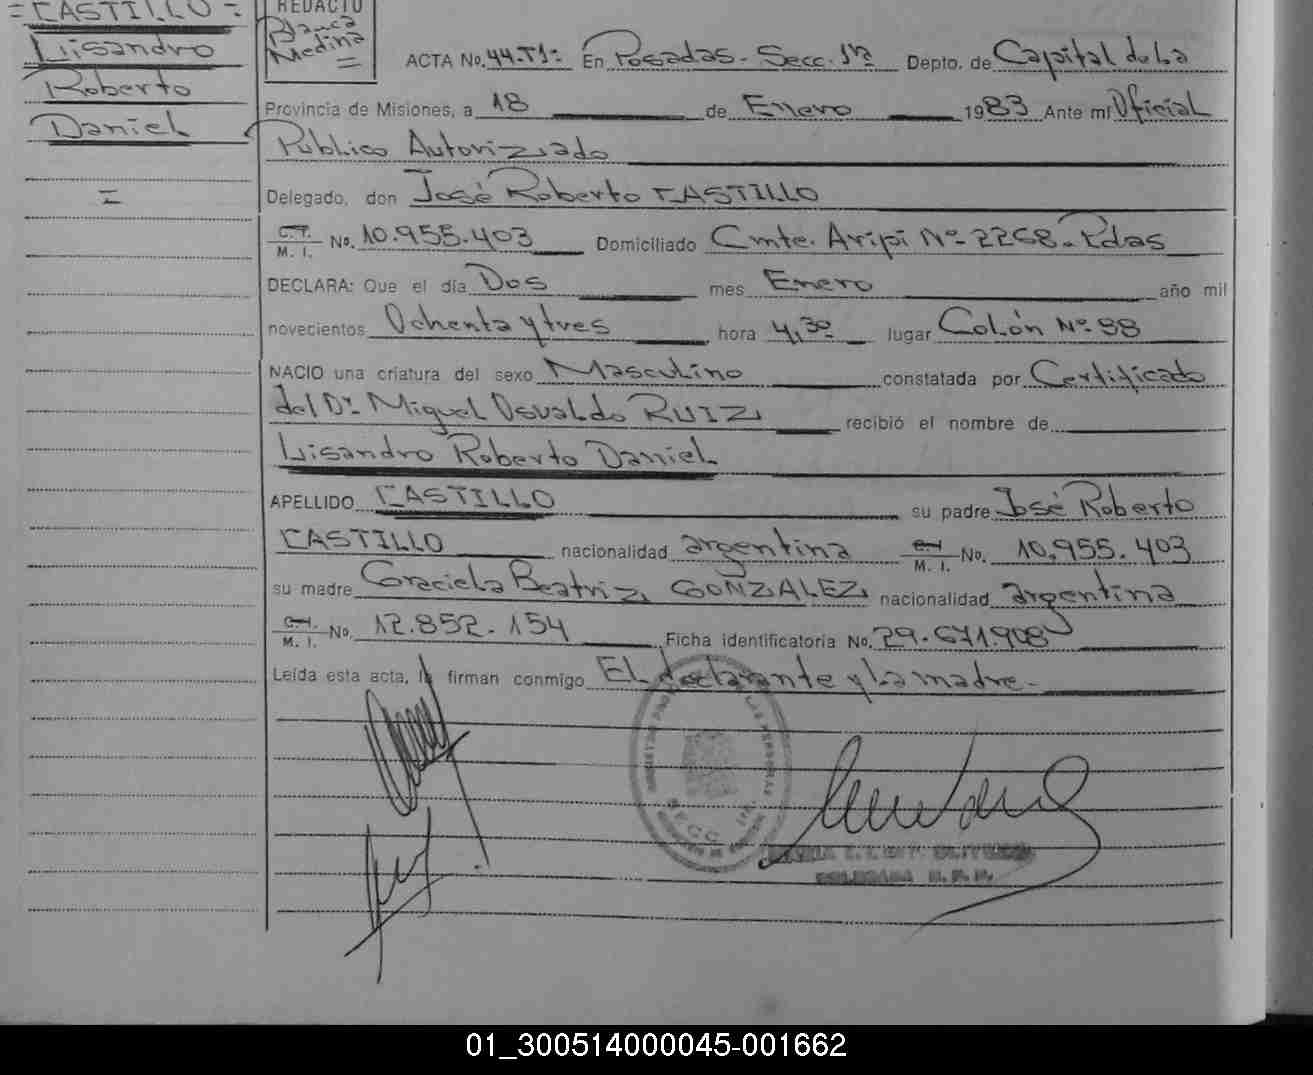 = CASTILLO =
Lisandro
Roberto
Daniel
=
REDACTO
Blanca
Medina
=
ACTA No. 44-T1= En Posadas-Secc. 1ra Depto. de Capital de La
Provincia de Misiones, a 18 de Enero 1983 Ante mi Oficial
Público Autorizado
Delegado, don José Roberto CASTILLO
C.I. M. I. No. 10.955.403 Domiciliado Cmte. Aripi No-2268-Pdas
DECLARA: Que el día Dos mes Enero año mil
novecientos Ochenta y tres hora 4,30 lugar Colón No. 88
NACIO una criatura del sexo Masculino constatada por Certificado
del Dr. Miguel Osvaldo RUIZ recibió el nombre de
Lisandro Roberto Daniel
APELLIDO CASTILLO su padre José Roberto
CASTILLO nacionalidad argentina C.I. M. I. No. 10.955.403
su madre Graciela Beatriz GONZALEZ nacionalidad argentina
C.I. M. I. No. 12.852.154 Ficha identificatoria No. 29.671.908
Leída esta acta, la firman conmigo El declarante y La madre.-
01_300514000045-001662